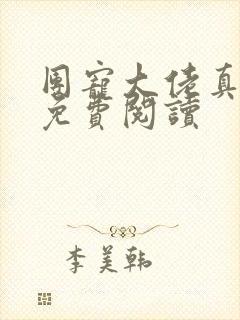 團寵大佬真
免費閱讀
李美韩